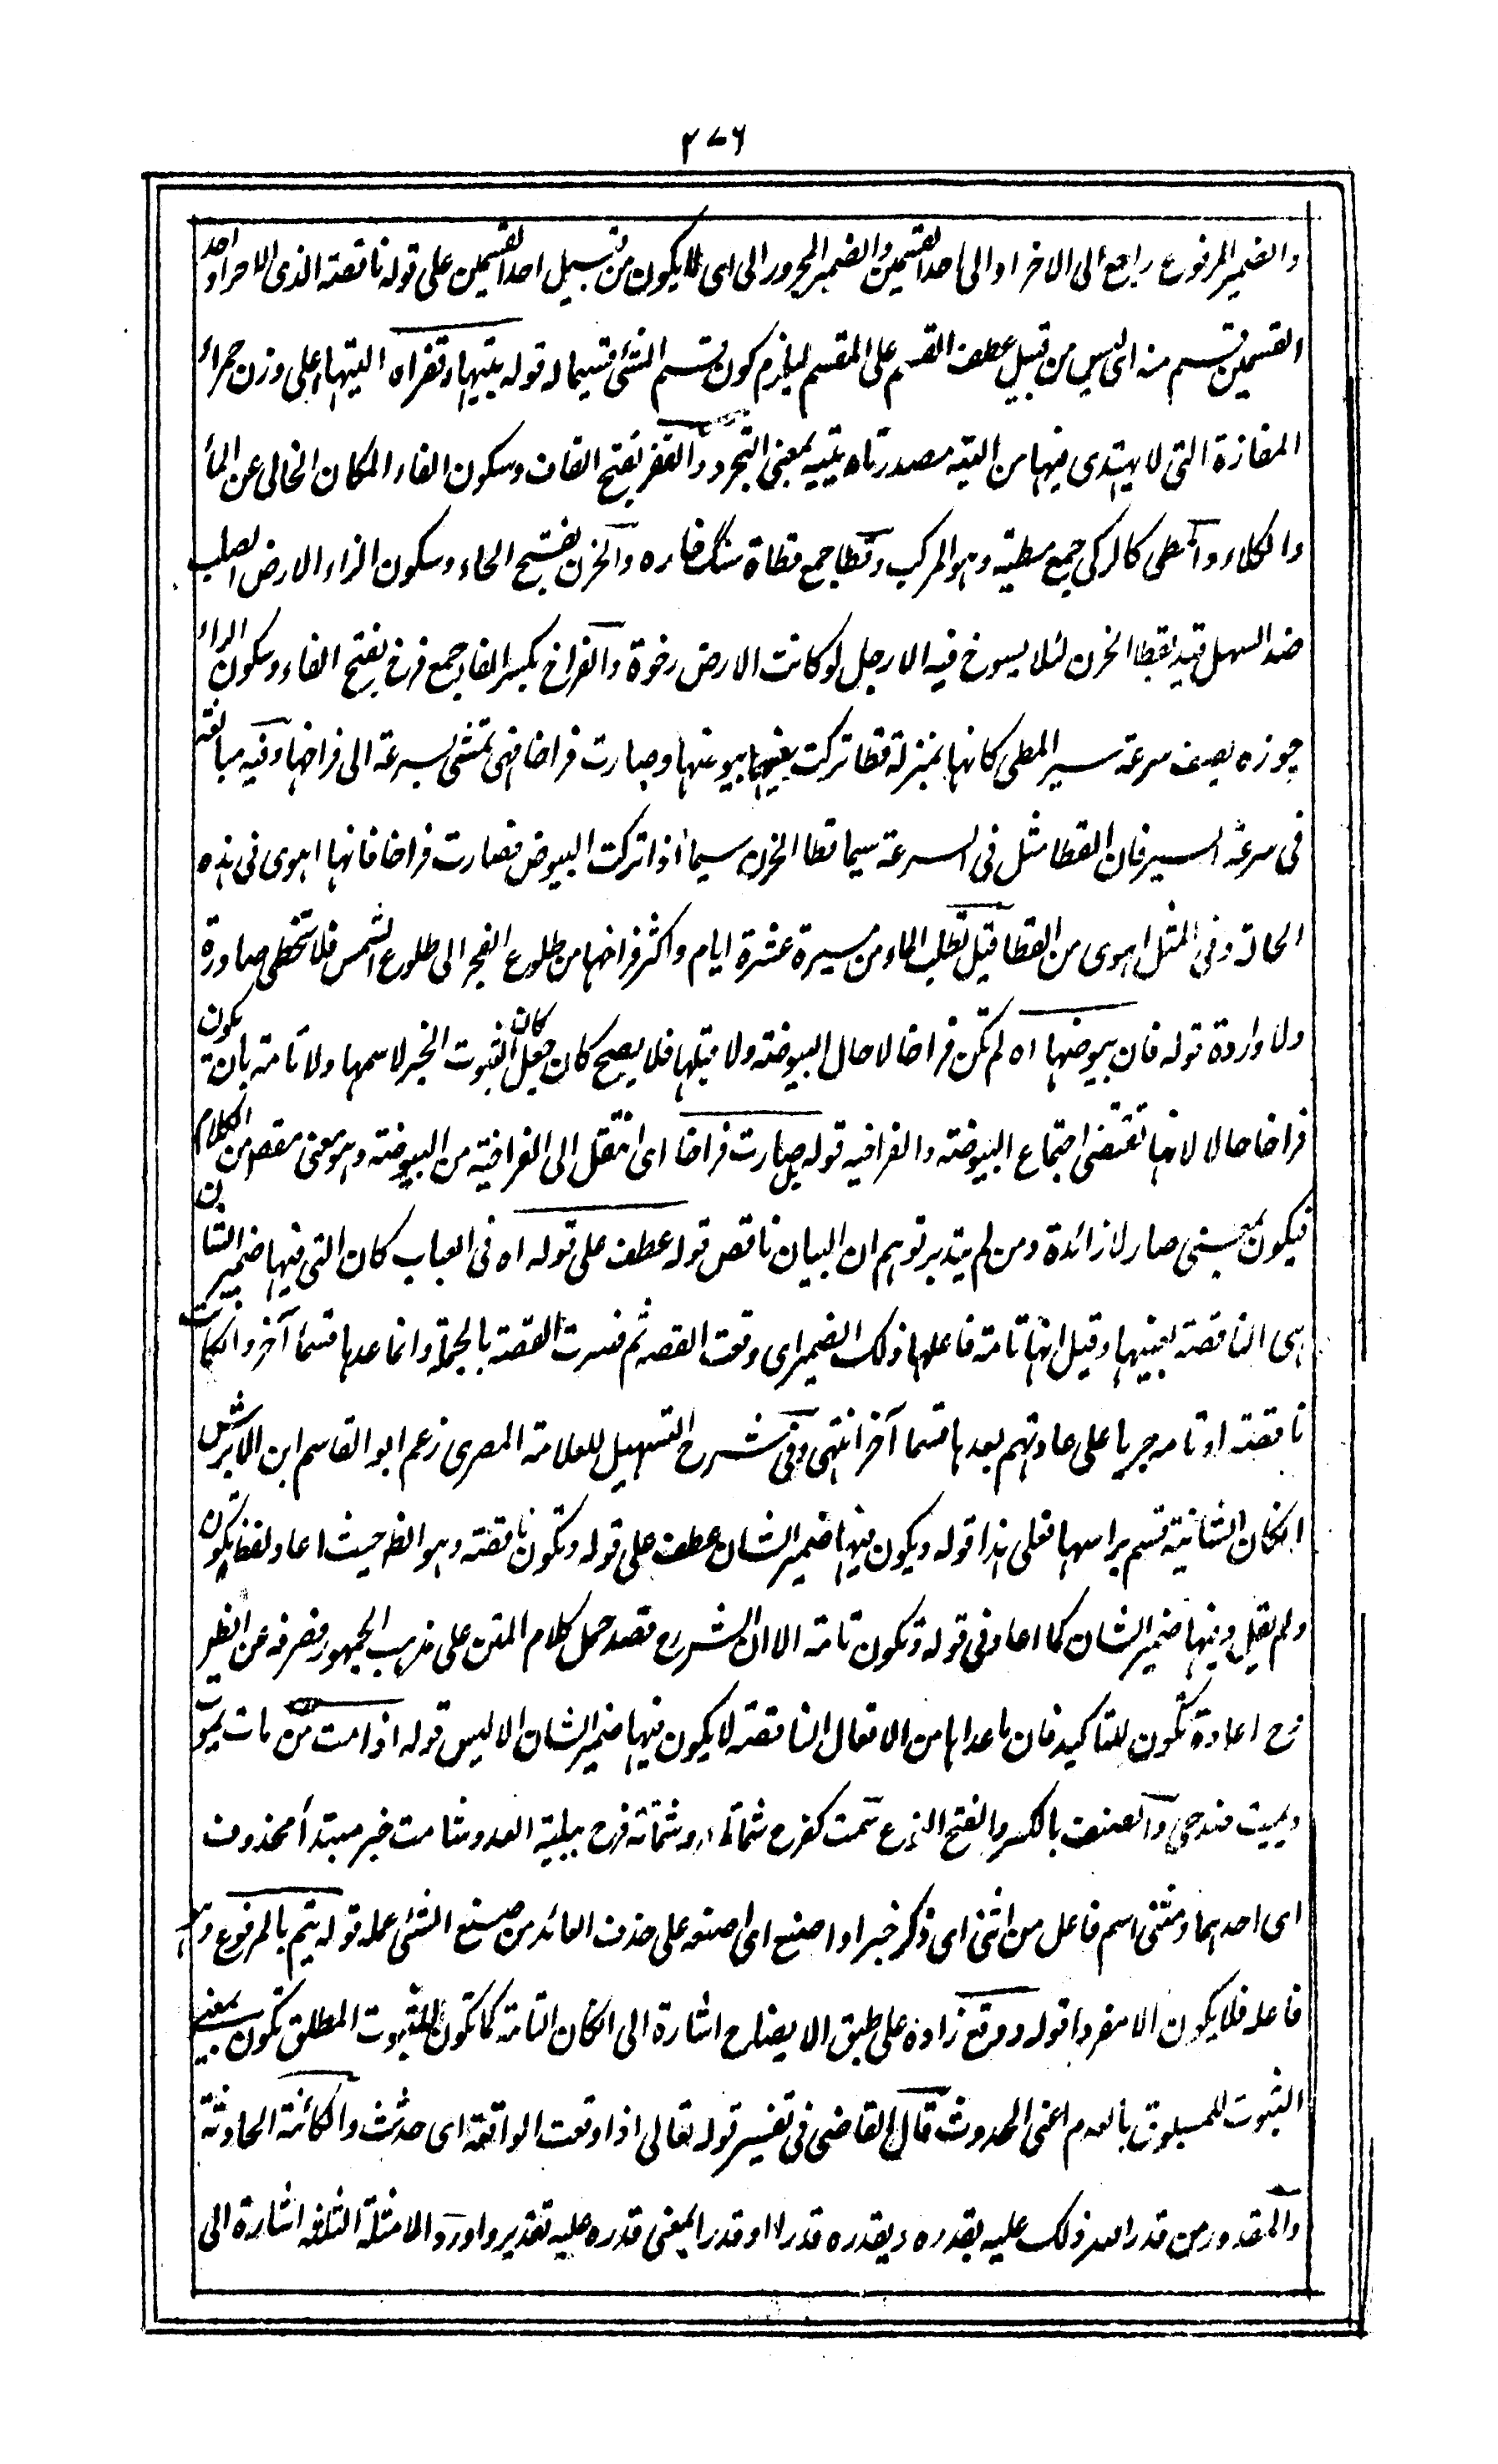 ٢٧٦
والضمير المرفوع راجع الى الاخر او الى احد القسمين والضمير المجرور الى اى لا يكون من قبيل احد القسمين على قوله ناقصة الذى الاخر او احد
القسمين قسم منه اى ليس من قبيل عطف القسم على المقسم ليلزم كون قسم الشئ قسيما له قوله بتيهاء قفراه التيهاء على وزن حمراء
المفازة التى لا يهتدى فيها من التيه مصدر تاه يتيه بمعنى التجرد والقفر بفتح القاف وسكون الفاء المكان الخالى عن الماء
والكلاء والمطى كالركى جمع مطية وهو المركب وقطا جمع قطاة سنگ خاره والحزن بفتح الحاء وسكون الزاء الارض الصلب
ضد السهل قيد بقطا الحزن لئلا يسوخ فيه الارجل لو كانت الارض رخوة والفراخ بكسر الفاء جمع فرخ بفتح الفاء وسكون الراء
چوزه يصف سرعة سير المطى كانها بمنزلة قطا تركت بيوضها وصارت فراخا فهى تمشى بسرعة الى فراخها وفيه مبالغة
فى سرعة السير فان القطا مثل فى السرعة سيما قطا الحزن سيما اذا تركت البيوض فصارت فراخا فانها اهوى فى هذه
الحالة وفى المثل اهوى من القطا قيل تطلب الماء من مسيرة عشرة ايام واكثر فراخها من طلوع الفجر الى طلوع الشمس فلا تخطى صادرة
ولا واردة قوله فان بيوضها اه لم تكن فراخا لا حال البيوضة ولا قبلها فلا يصح كان جعل كان لثبوت الخبر لاسمها ولا تامة بان يكون
فراخا حالا لانها تقتضى اجتماع البيوضة والفراخية قوله بل صارت فراخا اى انتقل الى الفراخية من البيوضة وهو معنى مقصود من الكلام
فيكون بمعنى صار لا زائدة ومن لم يتدبر توهم ان البيان ناقص قوله عطف على قوله اه فى العباب كان التى فيها ضمير الشان
هى الناقصة بعينها وقيل انها تامة فاعلها ذلك الضمير اى وقعت القصة ثم فسرت القصة بالجملة وانما عدها قسما آخر وان كانت
ناقصة او تامة جريا على عادتهم بعدها قسما آخر انتهى وفى شرح التسهيل للعلامة المصرى زعم ابو القاسم ابن الابرش
ان كان الشانية قسم براسها فعلى هذا قوله ويكون فيها ضمير الشان عطف على قوله وتكون ناقصة وهو الظ حيث اعاد لفظ يكون
ولم يقل وفيها ضمير الشان كما اعاد فى قوله وتكون تامة الا ان الشرح قصد حمل كلام المتن على مذهب الجمهور فصرفه عن الظهر
فح اعادة تكون للتاكيد فان ما عداها من الافعال الناقصة لا يكون فيها ضمير الشان الا ليس قوله اذا مت من مات يموت
ويميت والصنف بالكسر والفتح النوع شمت كفرح شماتا وشماتة فرح ببلية العدو شامت خبر مبتدأ محذوف
اى احدهما ومثنى اسم فاعل من اثنى اى ذكر خبرا واصنع اى اصنعه على حذف العائد من صنع الشئ عمله قوله يتم بالمرفوع وهو
فاعله فلا يكون الا مفردا قوله ووقع زاده على طبق الايضاح اشارة الى ان كان التامة كما تكون للثبوت المطلق تكون بمعنى
الثبوت للمسبوق بالعدم اعنى الحدوث قال القاضى فى تفسير قوله تعالى اذا وقعت الواقعة اى حدثت والكائنة الحادثة
والمقدور من قدر الله ذلك عليه يقدره ويقدره قدرا او قدرا بمعنى قدره عليه تقديرا واورد الامثلة الثلاثة اشارة الى